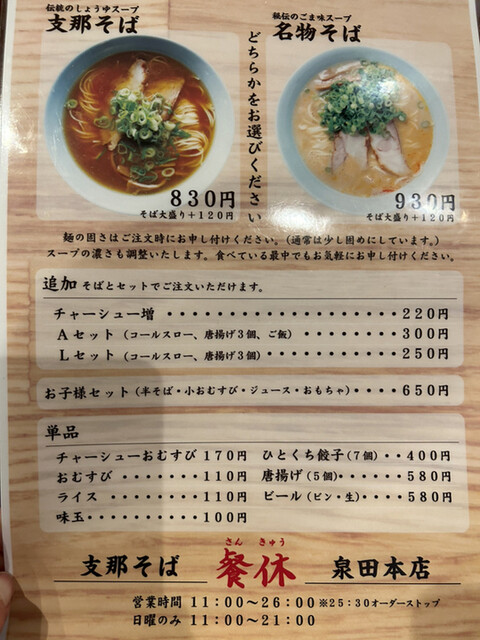 伝統のしょうゆスープ
支那そば
830円
そば大盛り+120円
どちらかをお選びください
秘伝のごま味スープ
名物そば
930円
そば大盛り+120円
麺の固さはご注文時にお申し付けください。(通常は少し固めにしています。)
スープの濃さも調整いたします。食べている最中でもお気軽にお申し付けください。
追加 そばとセットでご注文いただけます。
チャーシュー増 ・・・・・・・・・・・・・・・・・・ 220円
Aセット (コールスロー、唐揚げ3個、ご飯) ・・・・・・・・ 300円
Lセット (コールスロー、唐揚げ3個) ・・・・・・・・・・ 250円
お子様セット (半そば・小おむすび・ジュース・おもちゃ) ・・・・ 650円
単品
チャーシューおむすび 170円
おむすび ・・・・・・・・ 110円
ライス ・・・・・・・・・ 110円
味玉 ・・・・・・・・・・ 100円
ひとくち餃子(7個) ・・400円
唐揚げ(5個)・・・・・580円
ビール(ビン・生)・・・・580円
さん きゅう
支那そば 餐休 泉田本店
営業時間 11:00~26:00 ※25:30オーダーストップ
日曜のみ 11:00~21:00